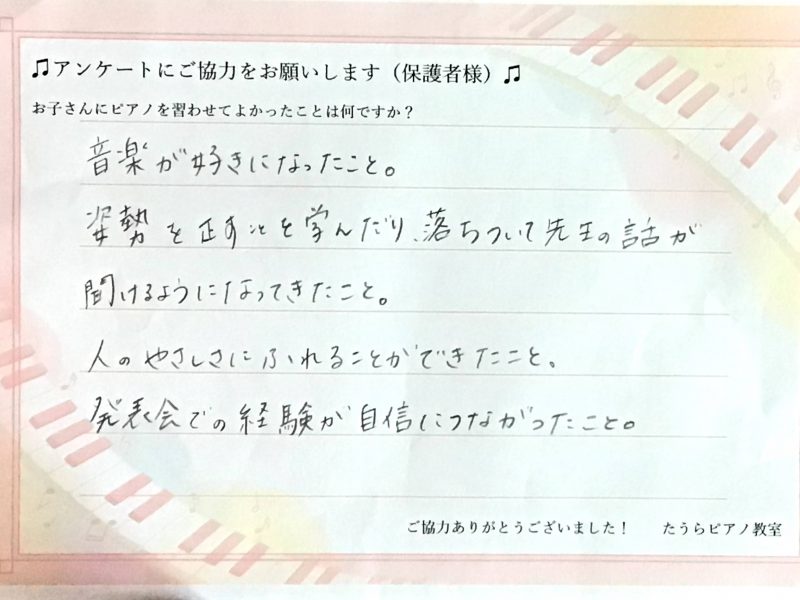 ♫アンケートにご協力をお願いします（保護者様）♫
お子さんにピアノを習わせてよかったことは何ですか？
音楽が好きになったこと。
姿勢を正すことを学んだり、落ちついて先生の話が
聞けるようになってきたこと。
人のやさしさにふれることができたこと。
発表会での経験が自信につながったこと。
ご協力ありがとうございました！　たうらピアノ教室